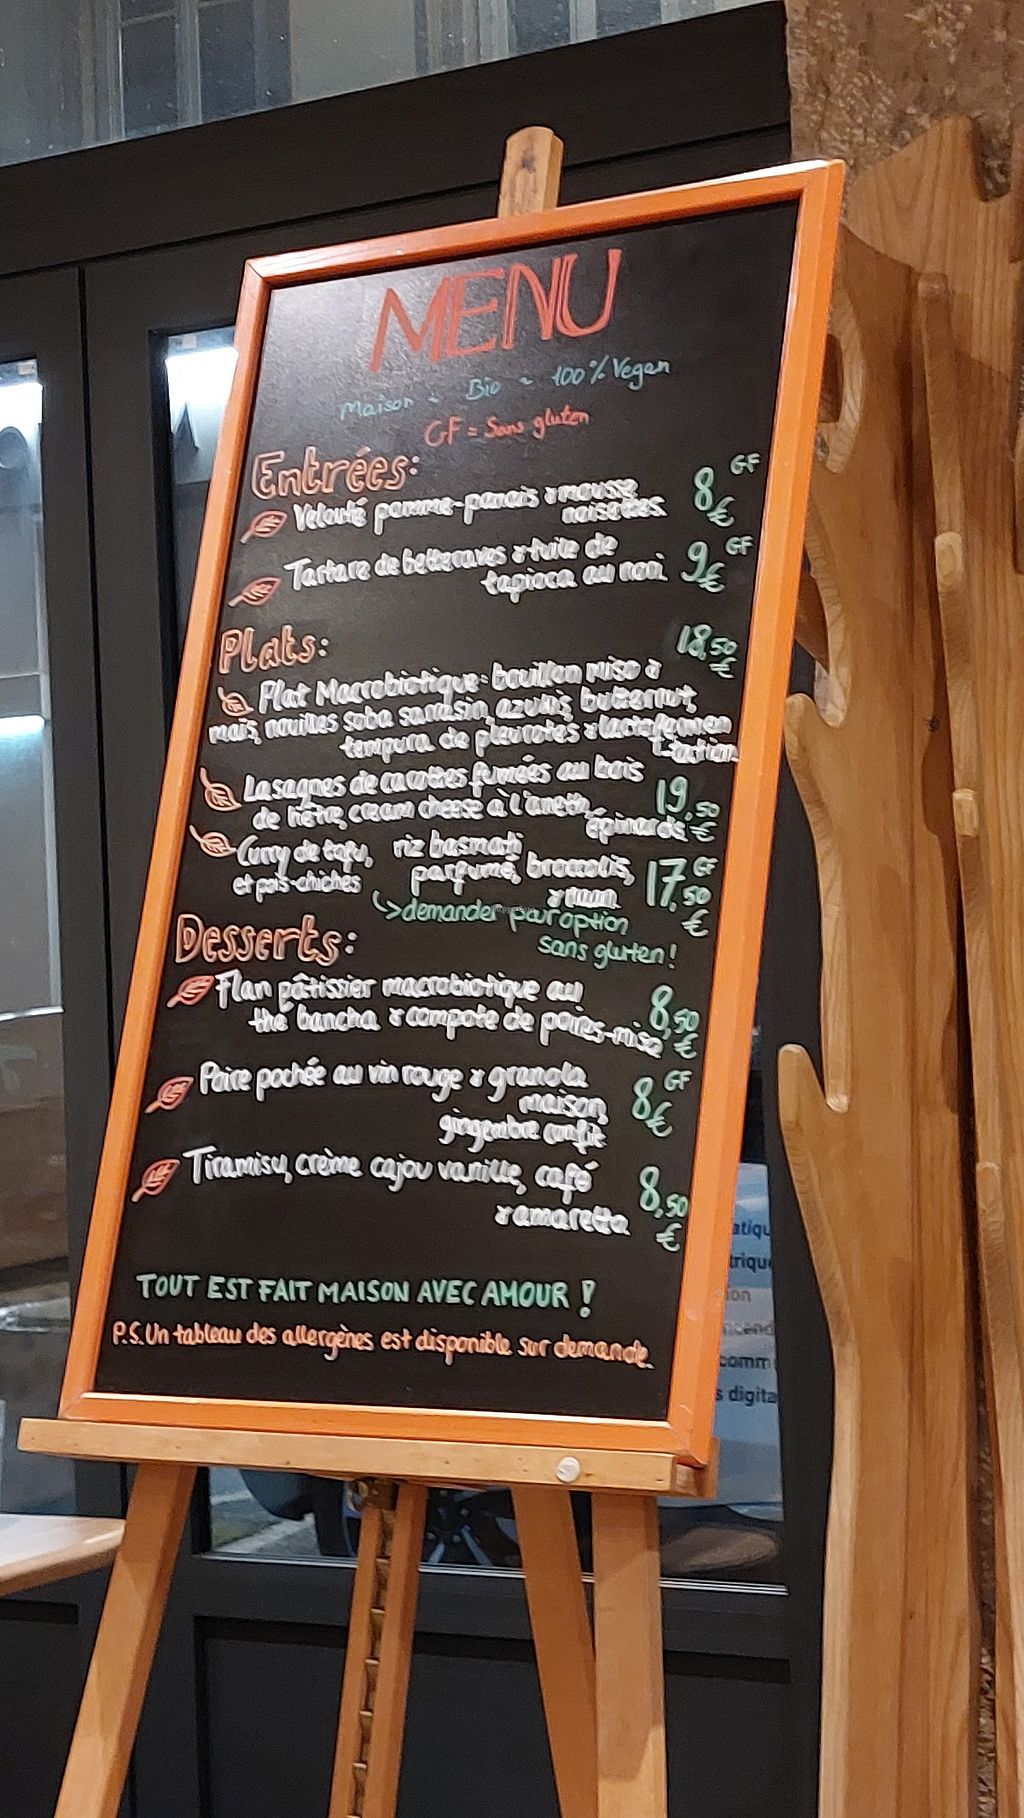 MENU
Maison ~ Bio ~ 100% Vegan
GF = Sans gluten
Entrées:
Velouté pomme-panais & mousse 8€ GF
noisettes
Tartare de betteraves & tuile de 9€ GF
tapioca au nori
Plats:
18,50€
Plat Macrobiotique: bouillon miso &
maïs, nouilles soba sarrasin, azukis, butternut,
tempura de pleurotes & lactofermen
tation
Lasagnes de carottes fumées au bois
de hêtre, cream cheese à l'aneth, 19,50€
épinards
Curry de tofu, riz basmati
et pois-chiches parfumé, brocolis, 17,50€ GF
& naan
↳ demander pour option
sans gluten!
Desserts:
Flan pâtissier macrobiotique au
thé bancha & compote de poires-miso 8,50€
Poire pochée au vin rouge & granola
maison, 8€ GF
gingembre confit
Tiramisu, crème cajou vanille, café
& amaretto 8,50€
TOUT EST FAIT MAISON AVEC AMOUR !
P.S. Un tableau des allergènes est disponible sur demande.
atiqu
trique
ion
comm
s digita